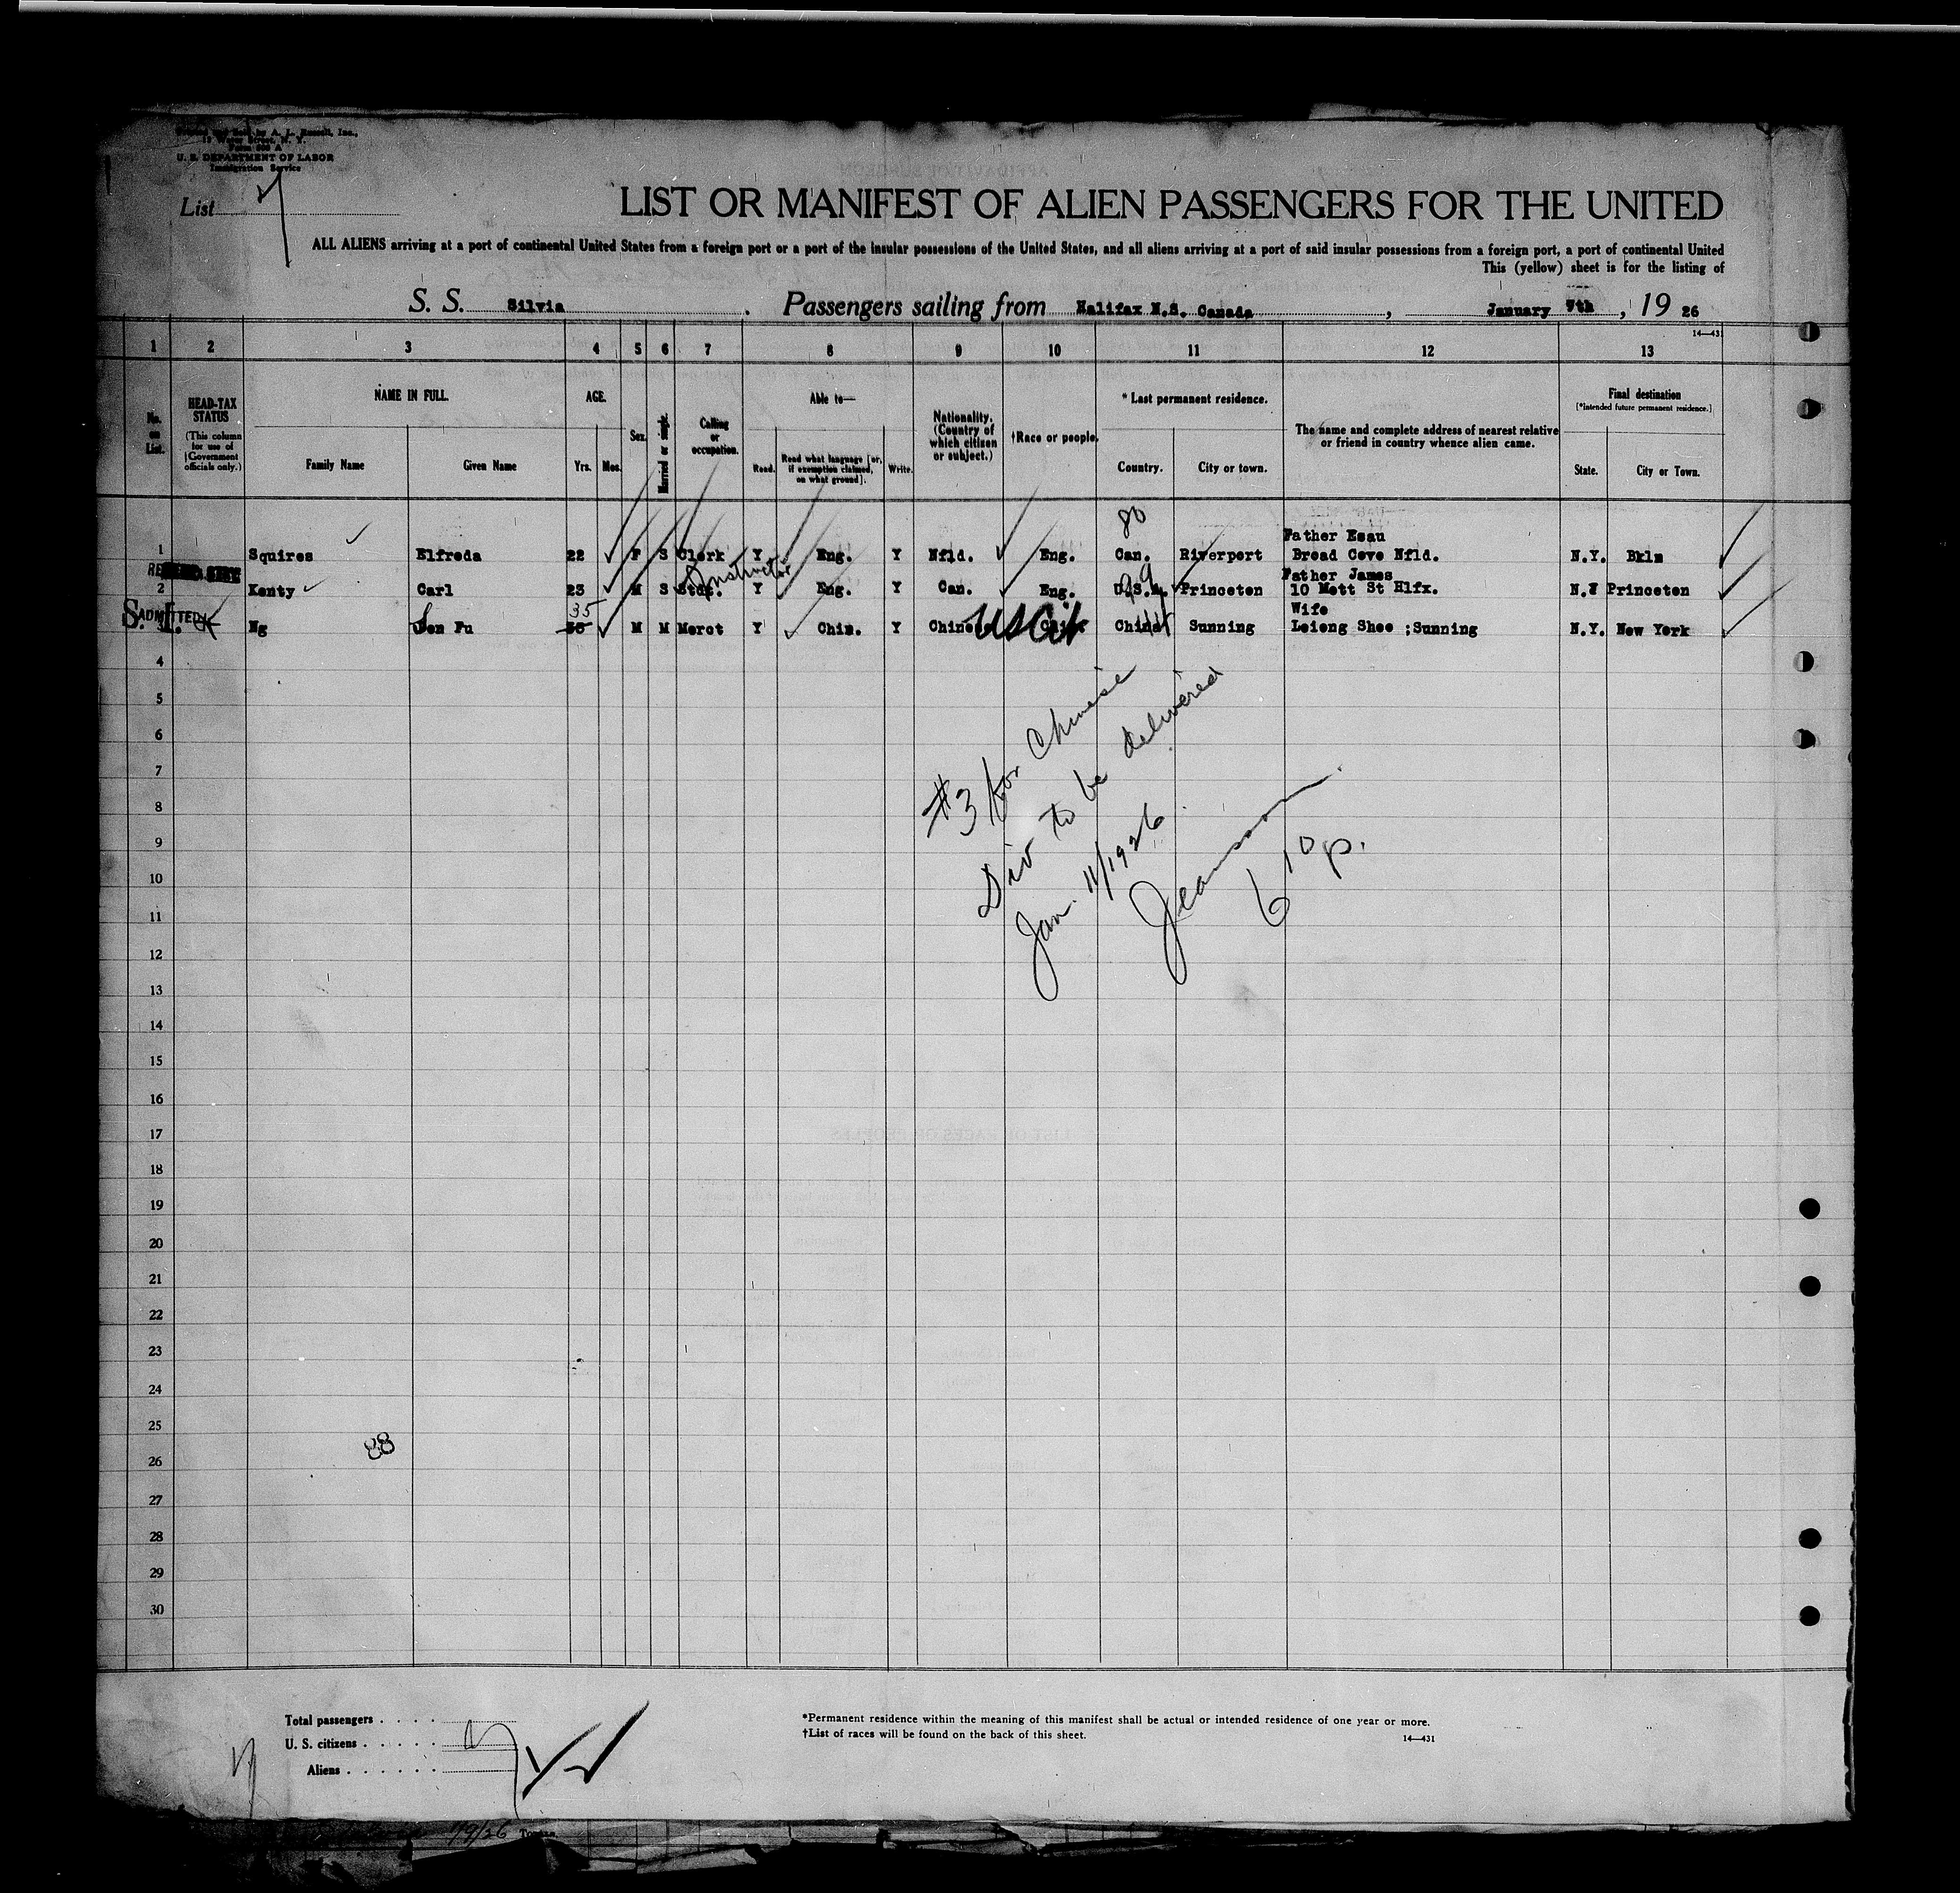 U. S. DEPARTMENT OF LABOR
Immigration Service
List
LIST OR MANIFEST OF ALIEN PASSENGERS FOR THE UNITED
ALL ALIENS arriving at a port of continental United States from a foreign port or a port of the insular possessions of the United States, and all aliens arriving at a port of said insular possessions from a foreign port, a port of continental United
This (yellow) sheet is for the listing of
S. S. Silvia. Passengers sailing from Halifax N.S. Canada, January 7th, 19 26
14—431
1 2 3 4 5 6 7 8 9 10 11 12 13
No. on List.
HEAD-TAX STATUS
(This column for use of Government officials only.)
NAME IN FULL.
Family Name Given Name
AGE.
Yrs. Mos.
Sex.
Married or single.
Calling or occupation.
Able to—
Read. Read what language [or, if exemption claimed, on what ground]. Write.
Nationality. (Country of which citizen or subject.)
†Race or people.
* Last permanent residence.
Country. City or town.
The name and complete address of nearest relative or friend in country whence alien came.
Final destination
[*Intended future permanent residence.]
State. City or Town.
80
Father Esau
1 Squires Elfreda 22 F S Clerk Y Eng. Y Nfld. Eng. Can. Riverport Broad Cove Nfld. N.Y. Bkln
Instructor
99
Father James
2 Kenty Carl 23 M S Stdt. Y Eng. Y Can. Eng. U.S.A. Princeton 10 Mott St Hlfx. N.J Princeton
ADMITTED
S. I.
35
Wife
3 Ng Sen Fu 36 M M Merct Y Chin. Y Chinese USCit Chin. China Sunning Leiong Shee ;Sunning N.Y. New York
4
5
6
7
8
9
10
11
12
13
14
15
16
17
18
19
20
21
22
23
24
25
26
27
28
29
30
#3 for Chinese
Div to be delivered
Jan. 11/1926
Jeanson
6 10 p.
88
Total passengers
U. S. citizens
Aliens
*Permanent residence within the meaning of this manifest shall be actual or intended residence of one year or more.
†List of races will be found on the back of this sheet.
14—431
1/9/26